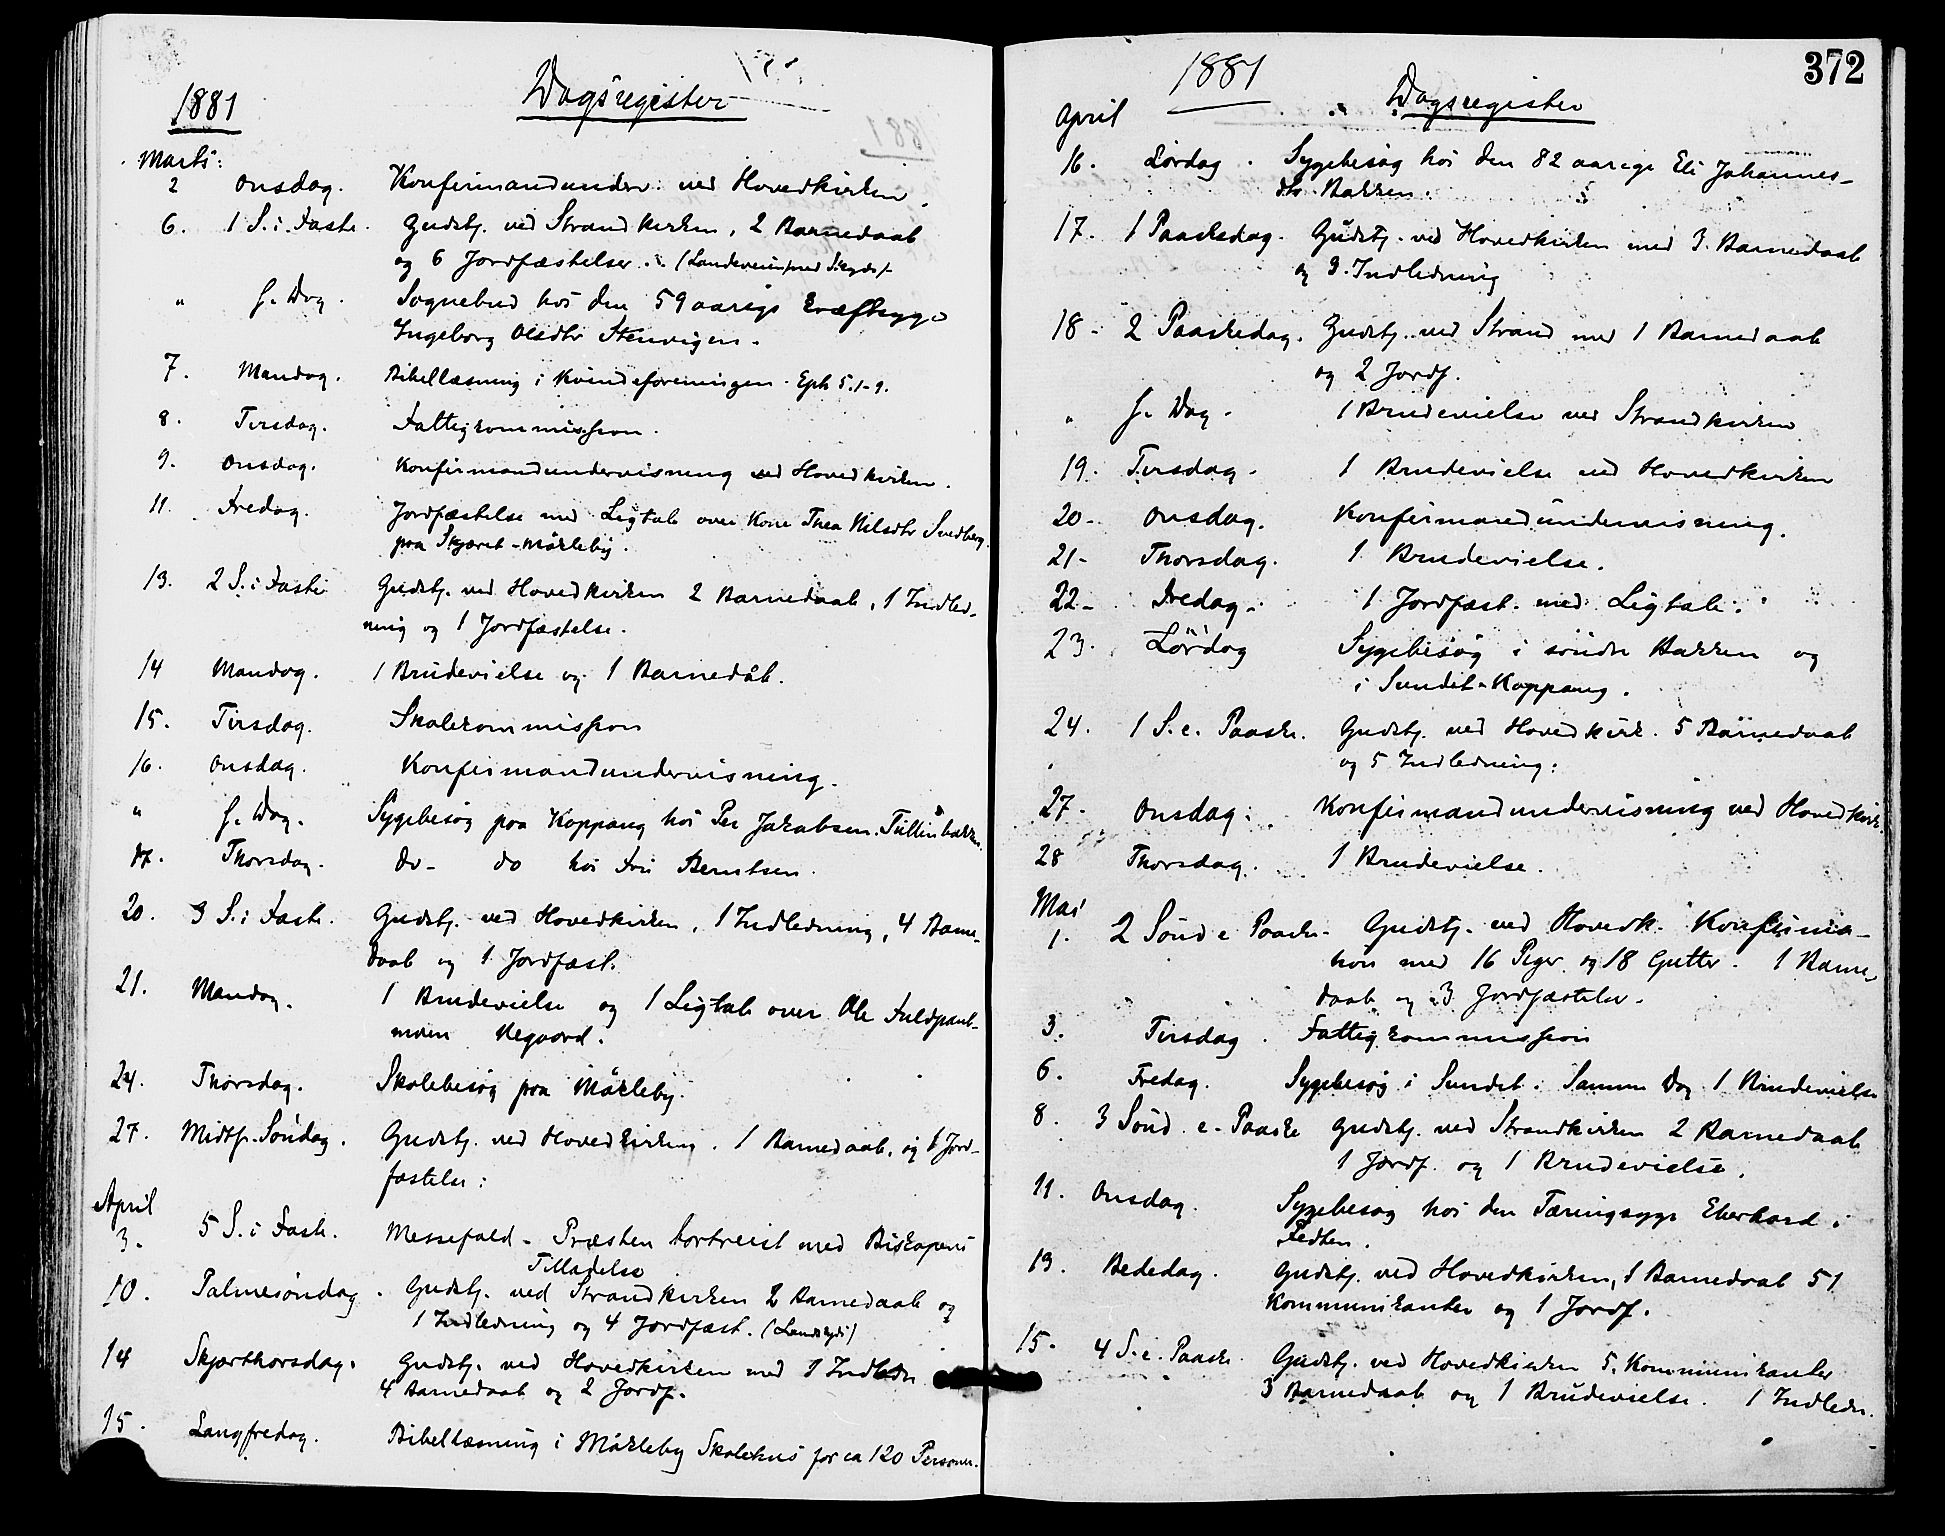 1881 Dagsregister
Marts:
2 Onsdag. Konfirmandunderv. ved Hovedkirken.
6. 1 S. i Faste. Gudstj. ved Strandkirken, 2 Barnedaab
og 6 Jordfæstelser.
" s. Dag. Sognebud hos den 59 aarige Kræftsyge
Ingeborg Olsdtr Stenvigen.
7. Mandag. Bibellæsning i Kvindeforeningen. Eph 5.1-9.
8. Tirsdag. Fattigkommission.
9. Onsdag. Konfirmandundervisning ved Hovedkirken.
11. Fredag. Jordfæstelse med Ligtale over Kone Thea Nilsdtr Svedberg
paa Skjæret-Mökleby.
13. 2 S. i Faste Gudstj. ved Hovedkirken 2 Barnedaab, 1 Indled-
ning og 1 Jordfæstelse.
14 Mandag. 1 Brudevielse og 1 Barnedåb.
15. Tirsdag. Skolekommission
16. Onsdag. Konfirmandundervisning.
" s. Dag. Sygebesøg paa Koppang hos Per Jakobsen
17. Thorsdag. do- do hos Bentsen.
20. 3 S. i Fast. Gudstj. ved Hovedkirken, 1 Indledning, 4 Barne-
daab og 1 Jordfæst.
21. Mandag. 1 Brudevielse og 1 Ligtale over Ole
Negaard.
24. Thorsdag. Skolebesøg paa Mökleby.
27. Midtf. Söndag. Gudstj. ved Hovedkirken. 1 Barnedaab, og 1 Jord-
fæstelse:
April
3. 5 S. i Fast. Messefald - Præsten bortreist med Biskopens
Tilladelse
10. Palmesöndag. Gudstj. ved Strandkirken 2 Barnedaab og
1 Indledning og 4 Jordfæst.
14 Skjærthorsdag. Gudstj. ved Hovedkirken med 1 Indledn
4 Barnedaab og 2 Jordf.
15. Langfredag. Bibellæsning i Mökleby Skolehus for ca 120 Personer.
372
1881 Dagsregister
April
16. Lördag. Sygebesøg hos den 82 aarige Eli Johannes-
dtr. Bakken.
17. 1 Paaskedag. Gudstj. ved Hovedkirken med 3 Barnedaab
og 3 Indledning
18- 2 Paaskedag. Gudstj. ved Strand med 1 Barnedaab
og 2 Jordf.
" s. Dag. 1 Brudevielse ved Strandkirken
19. Tirsdag. 1 Brudevielse ved Hovedkirken
20- Onsdag. Konfirmandundervisning.
21- Thorsdag. 1 Brudevielse.
22- Fredag. 1 Jordfæst. med Ligtale.
23. Lördag Sygebesøg i söndre Bakken og
i Sundet-Koppang.
24. 1 S. e. Paaske. Gudstj. ved Hovedkirk. 5 Barnedaab
og 5 Indledning.
27. Onsdag. Konfirmandundervisning ved Hovedkirk.
28 Thorsdag. 1 Brudevielse.
Mai
1. 2 Sönd e Paaske. Gudstj. ved Hovedk. Konfirma-
tion med 16 Piger og 18 Gutter. 1 Barne-
daab og 3 Jordfæstelser.
3. Tirsdag. Fattigkommission
6. Fredag. Sygebesøg i Sundet. Samme Dag 1 Brudevielse
8. 3 Sönd. e. Paaske Gudstj. ved Strandkirken 2 Barnedaab
1 Jordf. og 1 Brudevielse.
11. Onsdag. Sygebesøg hos den Tæringssyge Eberhard i
13. Bededag. Gudstj. ved Hovedkirken, 1 Barnedaab 51
Kommunikanter og 1 Jordf.
15. 4 S. e. Paaske. Gudstj. ved Hovedkirken 5 Kommunikanter
3 Barnedaab og 1 Brudevielse. 1 Indledn.